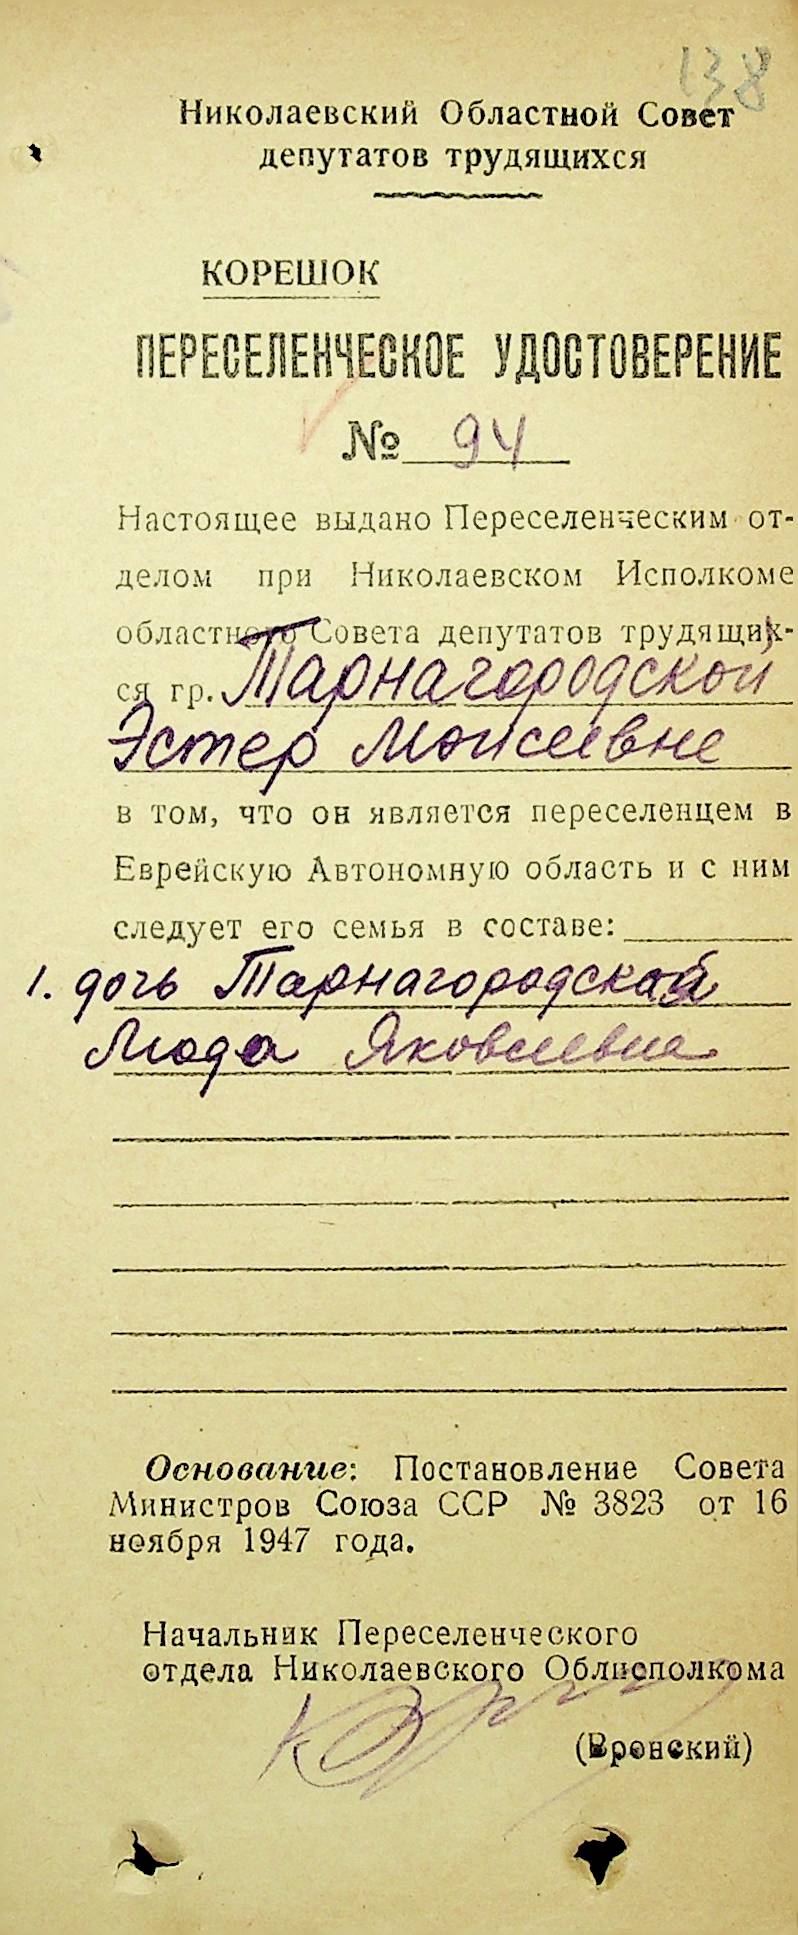 138
Николаевский Областной Совет
депутатов трудящихся
КОРЕШОК
ПЕРЕСЕЛЕНЧЕСКОЕ УДОСТОВЕРЕНИЕ
№ 94
Настоящее выдано Переселенческим от-
делом при Николаевском Исполкоме
областного Совета депутатов трудящих-
ся гр. Тарнагородской
Эстер Моисеевне
в том, что он является переселенцем в
Еврейскую Автономную область и с ним
следует его семья в составе:
1. дочь Тарнагородская
Люда Яковлевна
Основание: Постановление Совета
Министров Союза ССР № 3823 от 16
ноября 1947 года.
Начальник Переселенческого
отдела Николаевского Облисполкома
(Вронский)